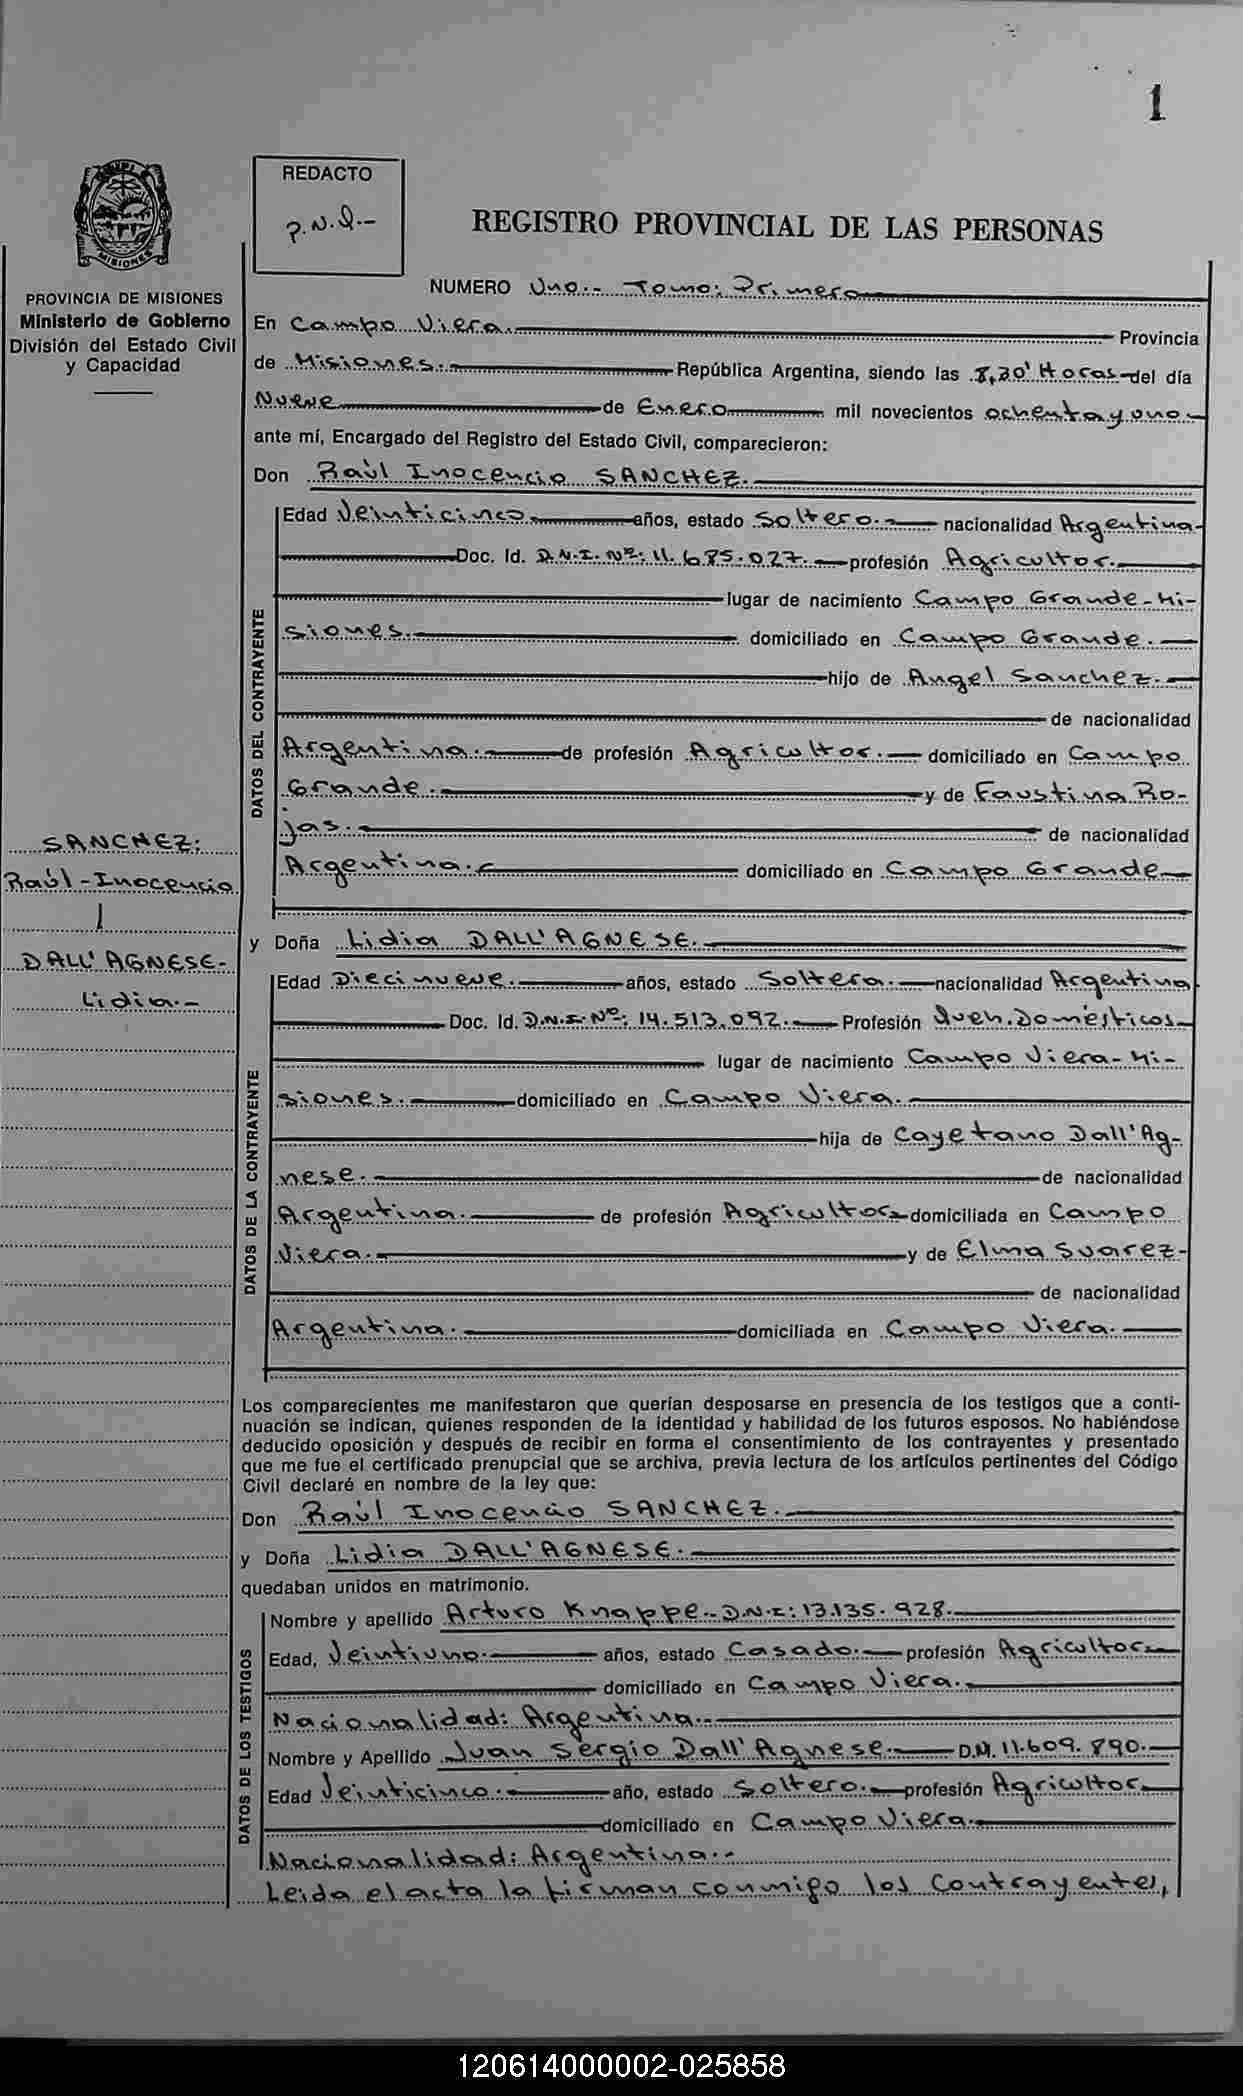 1
REDACTO
P.N.Q.--
REGISTRO PROVINCIAL DE LAS PERSONAS
MISIONES
PROVINCIA DE MISIONES
Ministerio de Gobierno
División del Estado Civil
y Capacidad
SANCHEZ:
Raúl-Inocencio
DALL'AGNESE-
Lidia.-
NUMERO Uno.- Tomo: Primero
En Campo Viera. Provincia
de Misiones. República Argentina, siendo las 8,30' Horas del día
Nueve de Enero mil novecientos ochenta y uno
ante mí, Encargado del Registro del Estado Civil, comparecieron:
Don Raúl Inocencio SANCHEZ.
DATOS DEL CONTRAYENTE
Edad Veinticinco años, estado Soltero.- nacionalidad Argentina-
Doc. Id. D.N.I. Nº: 11.685.027.- profesión Agricultor.
lugar de nacimiento Campo Grande-Mi-
siones. domiciliado en Campo Grande.
hijo de Angel Sanchez.
de nacionalidad
Argentina. de profesión Agricultor. domiciliado en Campo
Grande. y de Faustina Ro-
jas. de nacionalidad
Argentina. domiciliado en Campo Grande
y Doña Lidia DALL'AGNESE.
DATOS DE LA CONTRAYENTE
Edad Diecinueve. años, estado Soltera. nacionalidad Argentina
Doc. Id. D.N.I. Nº: 14.513.092. Profesión Queh. Domésticos
lugar de nacimiento Campo Viera-Mi-
siones. domiciliado en Campo Viera.
hija de Cayetano Dall'Ag-
nese. de nacionalidad
Argentina. de profesión Agricultor domiciliada en Campo
Viera. y de Elma Suarez-
de nacionalidad
Argentina. domiciliada en Campo Viera.
Los comparecientes me manifestaron que querían desposarse en presencia de los testigos que a conti-
nuación se indican, quienes responden de la identidad y habilidad de los futuros esposos. No habiéndose
deducido oposición y después de recibir en forma el consentimiento de los contrayentes y presentado
que me fue el certificado prenupcial que se archiva, previa lectura de los artículos pertinentes del Código
Civil declaré en nombre de la ley que:
Don Raúl Inocencio SANCHEZ.
y Doña Lidia DALL'AGNESE.
quedaban unidos en matrimonio.
DATOS DE LOS TESTIGOS
Nombre y apellido Arturo Knappe.- D.N.I: 13.135.928.
Edad, Veintiuno. años, estado Casado. profesión Agricultor
domiciliado en Campo Viera.
Nacionalidad: Argentina.
Nombre y Apellido Juan Sergio Dall'Agnese. D.N. 11.609.890.
Edad Veinticinco. año, estado Soltero. profesión Agricultor
domiciliado en Campo Viera.
Nacionalidad: Argentina.-
Leida el acta la firman conmigo los Contrayentes,
120614000002-025858